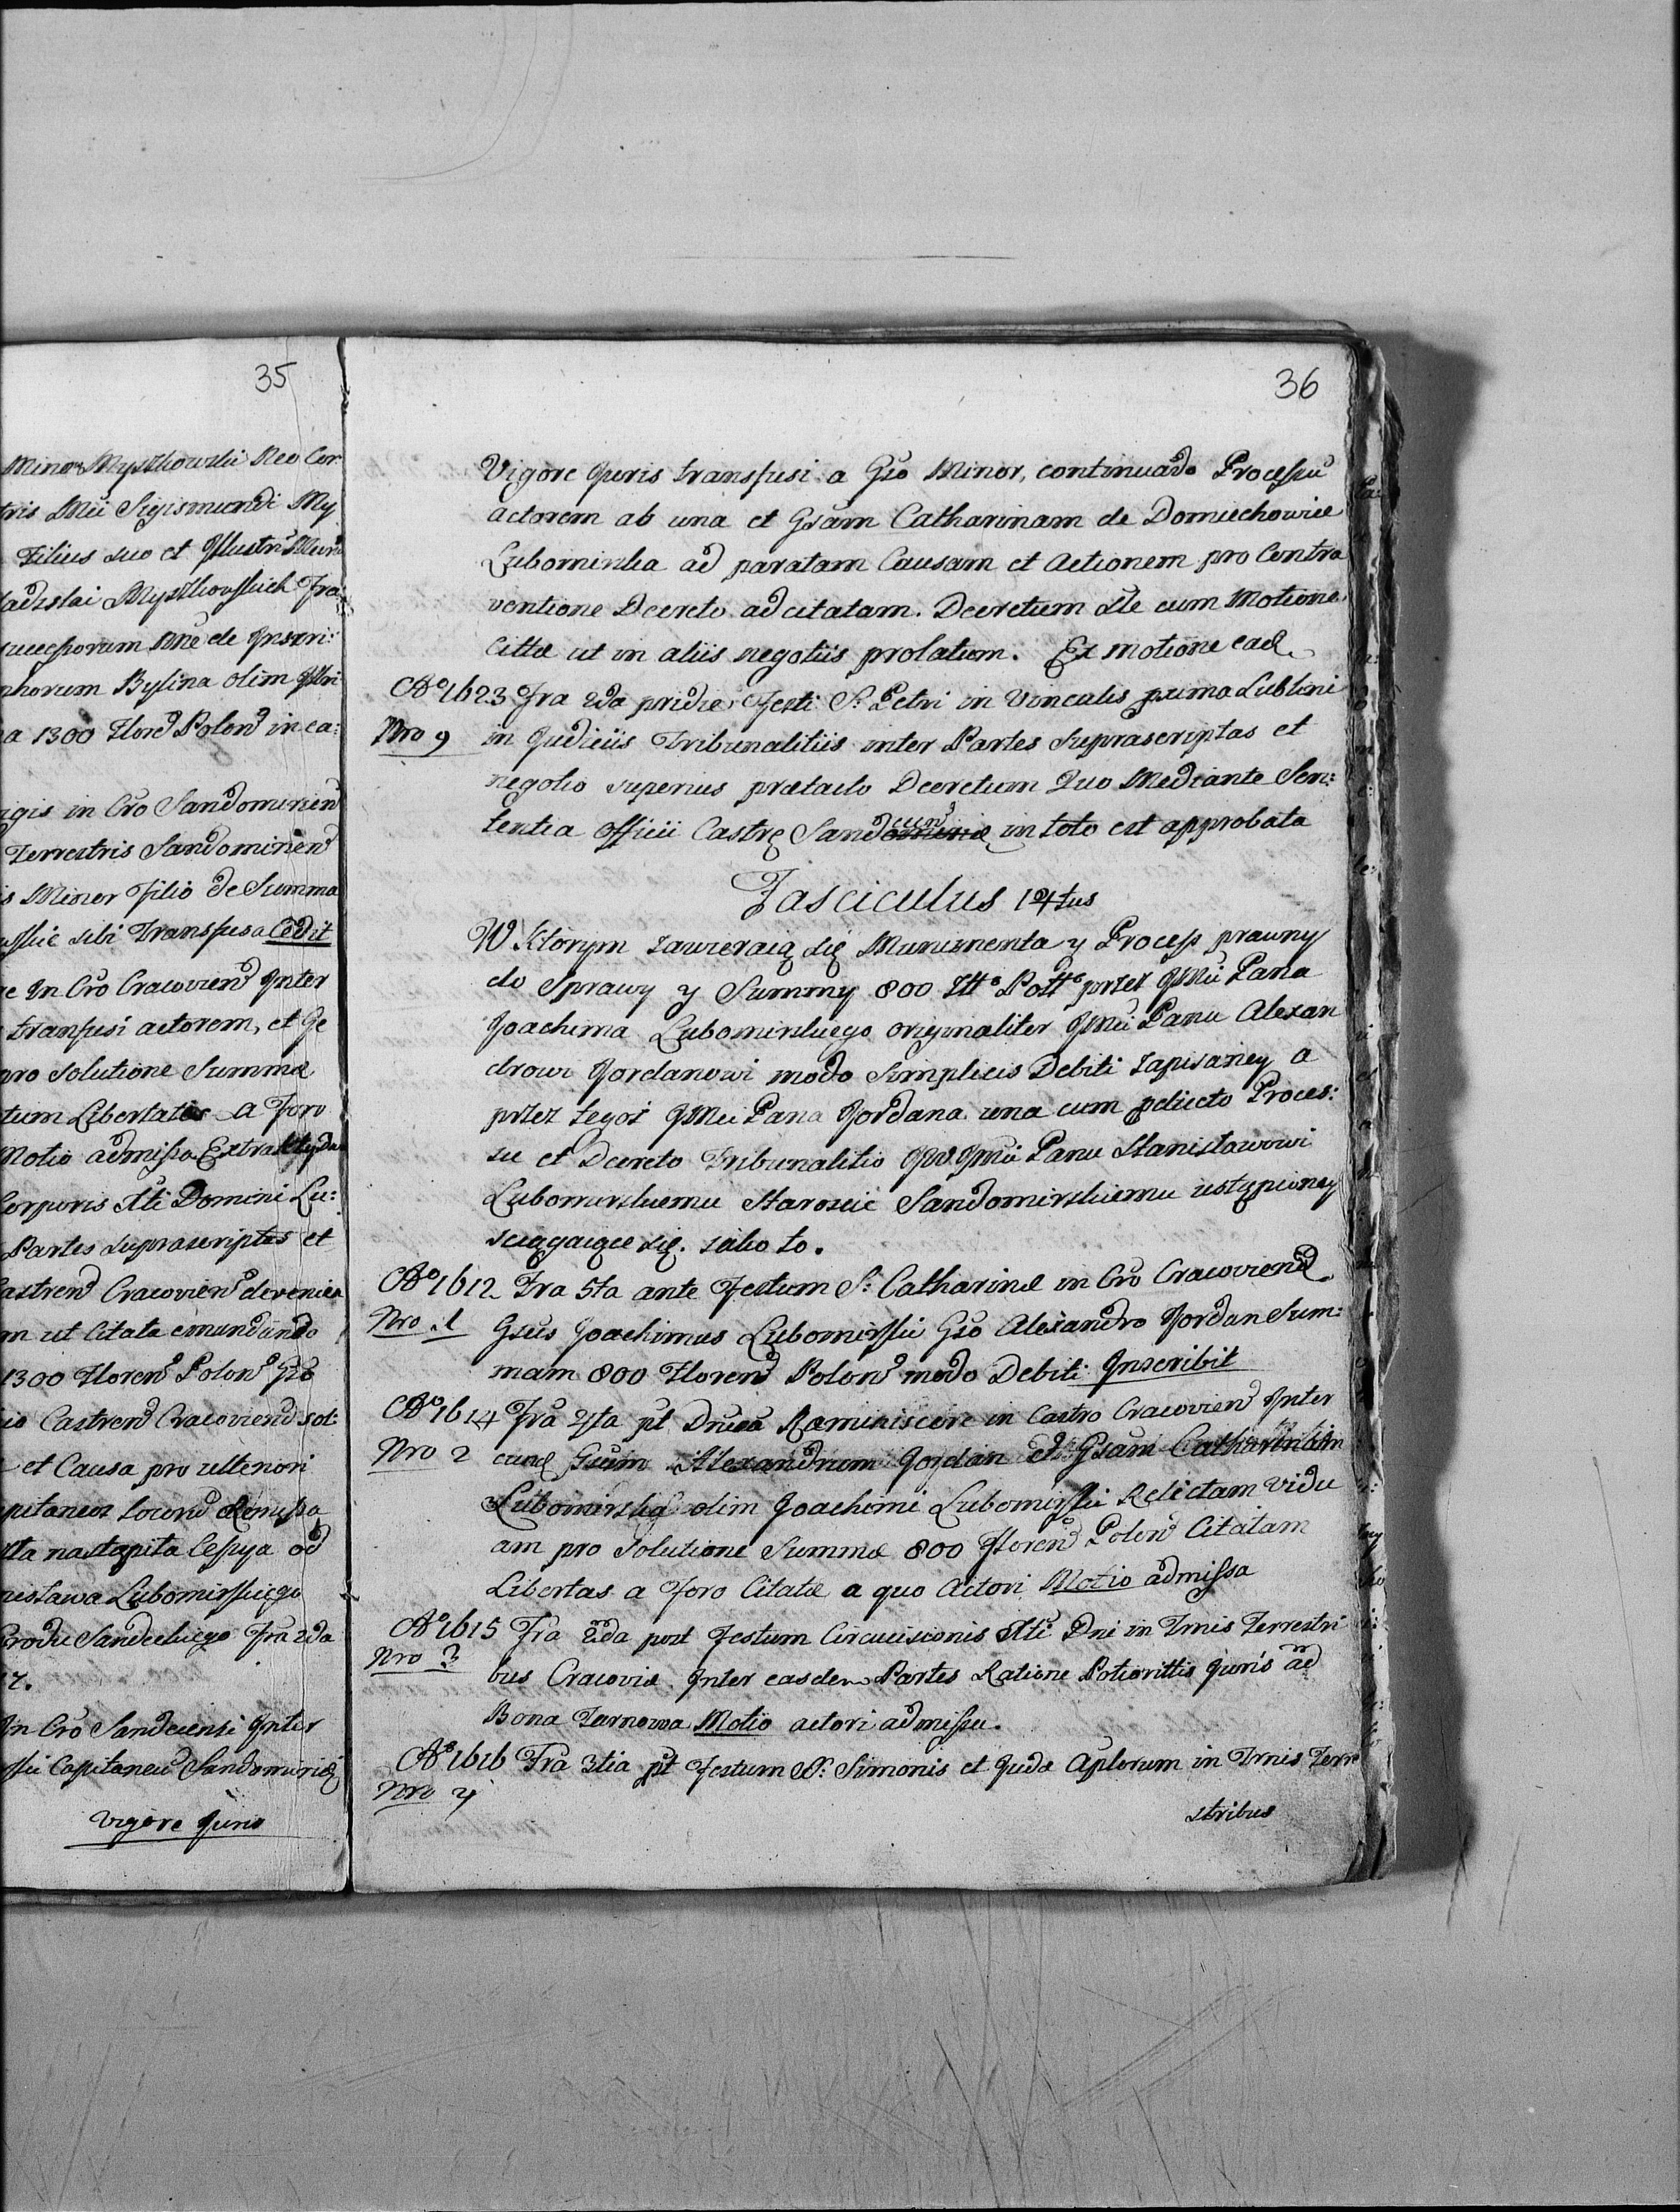 35
Minor Myszkowski Neo Cor
tris Mũ Sigismundi My
Filius suo et Illustri
adislai Myszkowskich Fra
successorum noē de Inscri:
nphorum Bylina olim
a 1300 Floreñ Poloñ in ca:
igis in Cřo Sandomirieñ
Terrestris Sandomirieñ
is Minor Filio de Summa
sskie sibi Transfusa Cedit
re In Cřo Cracovieñ Inter
transfusi actorem, et Ge
pro solutione Summæ
tum Libertates a Foro
Motio admissa
Corporis Xti Domini Lu:
Partes suprascriptas et
Castreñ Cracovieñ
m ut Citata emundando
1300 Floreñ Poloñ Gšo
io Castreñ Cracovieñ sol:
et Causa pro ulteriori
pitaneos Remissa
ta nastąpiła Cessya od
nisława Lubomirskiego
Grodu Sandeckiego Fřa 2da
7.
In Cřo Sandecensi Inter
sski Capitaneũ Sandomirieñ
Vigore Juris
36
Vigore Juris transfusi a Gšo Minor, continuado Processu
actorem ab una et Gšam Catharinam de Domiechowice
Lubomirska ad paratam Causam et Actionem pro Contra
ventione Decreto ad citatam. Decretum Xte cum Motione
Cittæ ut in aliis negotiis prolatum. Ex motione ead.
Aº 1623 Fra 2da pridie Festi S. Petri in Vinculis prima Lublini
Nro 9 in Judiciis Tribunalitiis inter Partes Suprascriptas et
negotio superius prætacto Decretum Quo Mediante Sen:
tentia Officii Castrę Sandomiriæ eien in toto est approbata
Fasciculus 14tus
W Ktorym zawieraią się Munimenta y Process prawny
do Sprawy y Summy 800 Złł Połł przez JMci Pana
Joachima Lubomirskiego originaliter JMci Panu Alexan
drowi Jordanowi modo Simplicis Debiti zapisaney a
przez tegoż JMci Pana Jordana una cum relicto Proces:
su et Decreto Tribunalitio JW JMci Panu Stanisławowi
Lubomirskiemu Staroscie Sandomirskiemu ustąpioney
sciągaiące się. iako to.
Aº 1612 Fra 5ta ante Festum S: Catharinæ in Cřo Cracovieñ
Nro .1 Gšus Joachimus Lubomirski Gšo Alexandro Jordan Sum:
mam 800 Floreñ Poloñ modo Debiti Inscribit
Aº 1614 Fřa 4ta pt Dñca Reminiscere in Castro Cracovieñ Inter
Nro 2 eund Gšum Alexandrum Jordan et Gšam Catharinam
Lubomirską olim Joachimi Lubomirski Relictam Vidu
am pro Solutione Summæ 800 Floreñ Poloñ Citatam
Libertas a Foro Citatæ a quo Actori Motio admissa
Aº 1615 Fřa 2da post Festum Circumcisionis Xti Dni in Tmis Terrestri
Nro 3 bus Cracoviæ Inter easdem Partes Ratione Potiorittis Juris ad
Bona Tarnowa Motio actori admissa.
Aº 1616 Fřa 3tia pt Festum S: Simonis et Judæ Aplorum in Tmis Terre
Nro 4
stribus